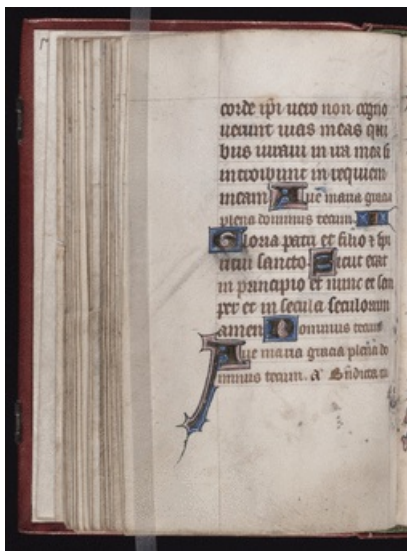 corde ipi uero non cogno
uerunt uias meas qui
bus iuraui in ira mea si
introibunt in requiem
meam Aue maria gracia
plena dominus tecum
Gloria patri et filio &
ritui sancto Sicut erat
in principio et nunc et sem
per et in secula seculorum
amen Dominus tecum
Aue maria gracia plena do
minus tecum. a